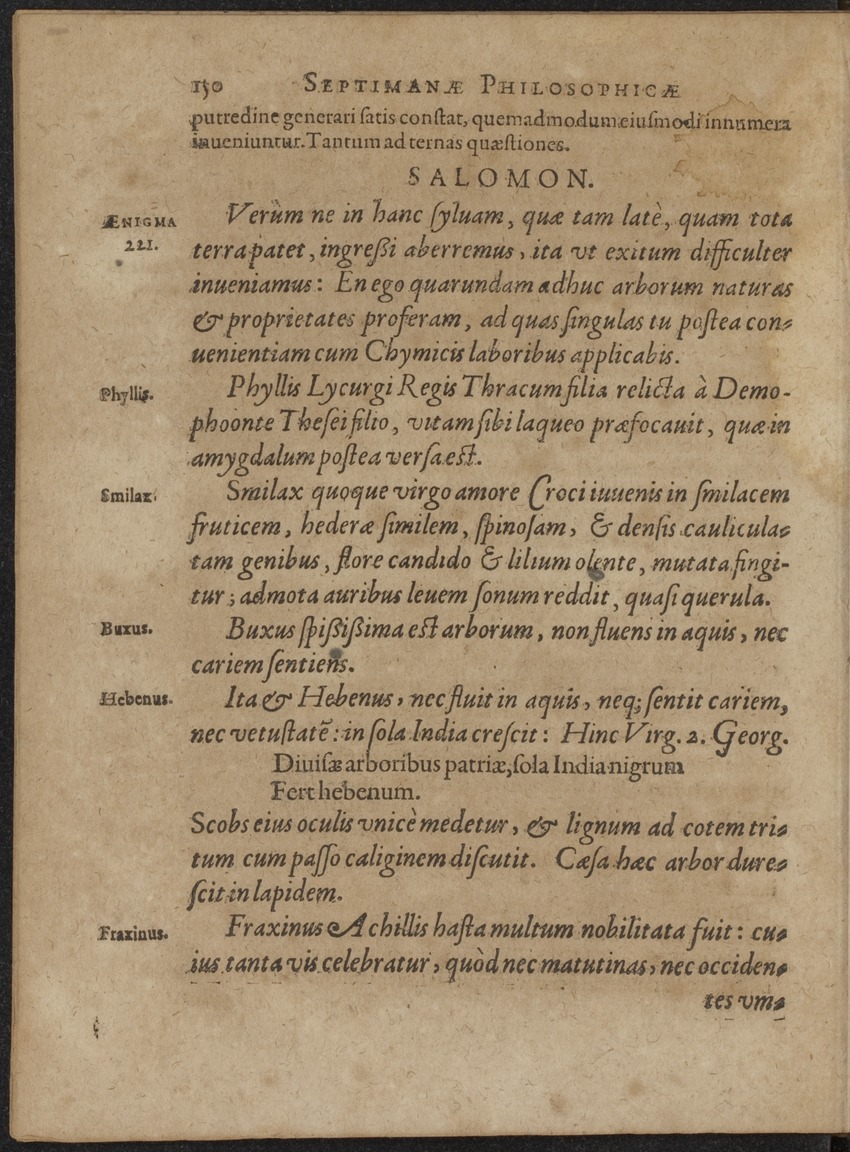 150 SEPTIMANÆ PHILOSOPHICÆ
putredine generari ſatis conſtat, quemadmodum eiuſmodi innumera
inueniuntur. Tantum ad ternas quæſtiones.
SALOMON.
ÆNIGMA
221.
Verùm ne in hanc ſyluam, quæ tam latè, quam tota
terra patet, ingreßi aberremus, ita vt exitum difficulter
inueniamus: En ego quarundam adhuc arborum naturas
& proprietates proferam, ad quas ſingulas tu poſtea con-
uenientiam cum Chymicis laboribus applicabis.
Phyllis.
Phyllis Lycurgi Regis Thracum filia relicta à Demo-
phoonte Theſei filio, vitam ſibi laqueo præfocauit, quæ in
amygdalum poſtea verſa eſt.
Smilax.
Smilax quoque virgo amore Croci iuuenis in ſmilacem
fruticem, hederæ ſimilem, ſpinoſam, & denſis cauliculа-
tam genibus, flore candido & lilium olente, mutata fingi-
tur; admota auribus leuem ſonum reddit, quaſi querula.
Buxus.
Buxus ſpißißima eſt arborum, non fluens in aquis, nec
cariem ſentiens.
Hebenus.
Ita & Hebenus, nec fluit in aquis, neq; ſentit cariem,
nec vetuſtatẽ: in ſola India creſcit: Hinc Virg. 2. Georg.
Diuiſæ arboribus patriæ, ſola India nigrum
Fert hebenum.
Scobs eius oculis vnicè medetur, & lignum ad cotem tri-
tum cum paſſo caliginem diſcutit. Cæſa hæc arbor dure-
ſcit in lapidem.
Fraxinus.
Fraxinus Achillis haſta multum nobilitata fuit: cu-
ius tanta vis celebratur, quòd nec matutinas, nec occiden-
tes vm-